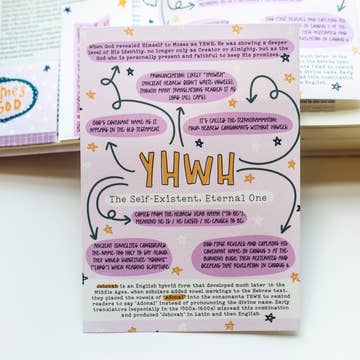 When God revealed Himself to Moses as YHWH, He was showing a deeper
level of His identity, no longer only as Creator or Almighty, but as the
God who is personally present and faithful to keep His promises.
PRONUNCIATION: LIKELY "YAHWEH".
ANCIENT HEBREW DIDN'T WRITE VOWELS,
THOUGH MANY TRANSLATIONS RENDER IT AS
LORD (ALL CAPS).
GOD'S COVENANT NAME AS IT
APPEARS IN THE OLD TESTAMENT.
IT'S CALLED THE TETRAGRAMMATON:
FOUR HEBREW CONSONANTS WITHOUT VOWELS.
YHWH
The Self-Existent, Eternal One
COMES FROM THE HEBREW VERB HAYAH ("TO BE"),
MEANING HE IS / HE EXISTS / HE CAUSES TO BE.
ANCIENT ISRAELITES CONSIDERED
THE NAME TOO HOLY TO SAY ALOUD.
THEY WOULD SUBSTITUTE "ADONAI"
("LORD") WHEN READING SCRIPTURE.
GOD FIRST REVEALS AND EXPLAINS HIS
COVENANT NAME IN EXODUS 3 AT THE
BURNING BUSH, THEN REITERATES AND
DEEPENS THAT REVELATION IN EXODUS 6.
Jehovah is an English hybrid form that developed much later in the
Middle Ages, when scholars added vowel markings to the Hebrew text.
they placed the vowels of "Adonai" into the consonants YHWH to remind
readers to say "Adonai" instead of pronouncing the divine name. Early
translators (especially in the 1500s-1600s) misread this combination
and produced "Jehovah" in Latin and then English.
GOD